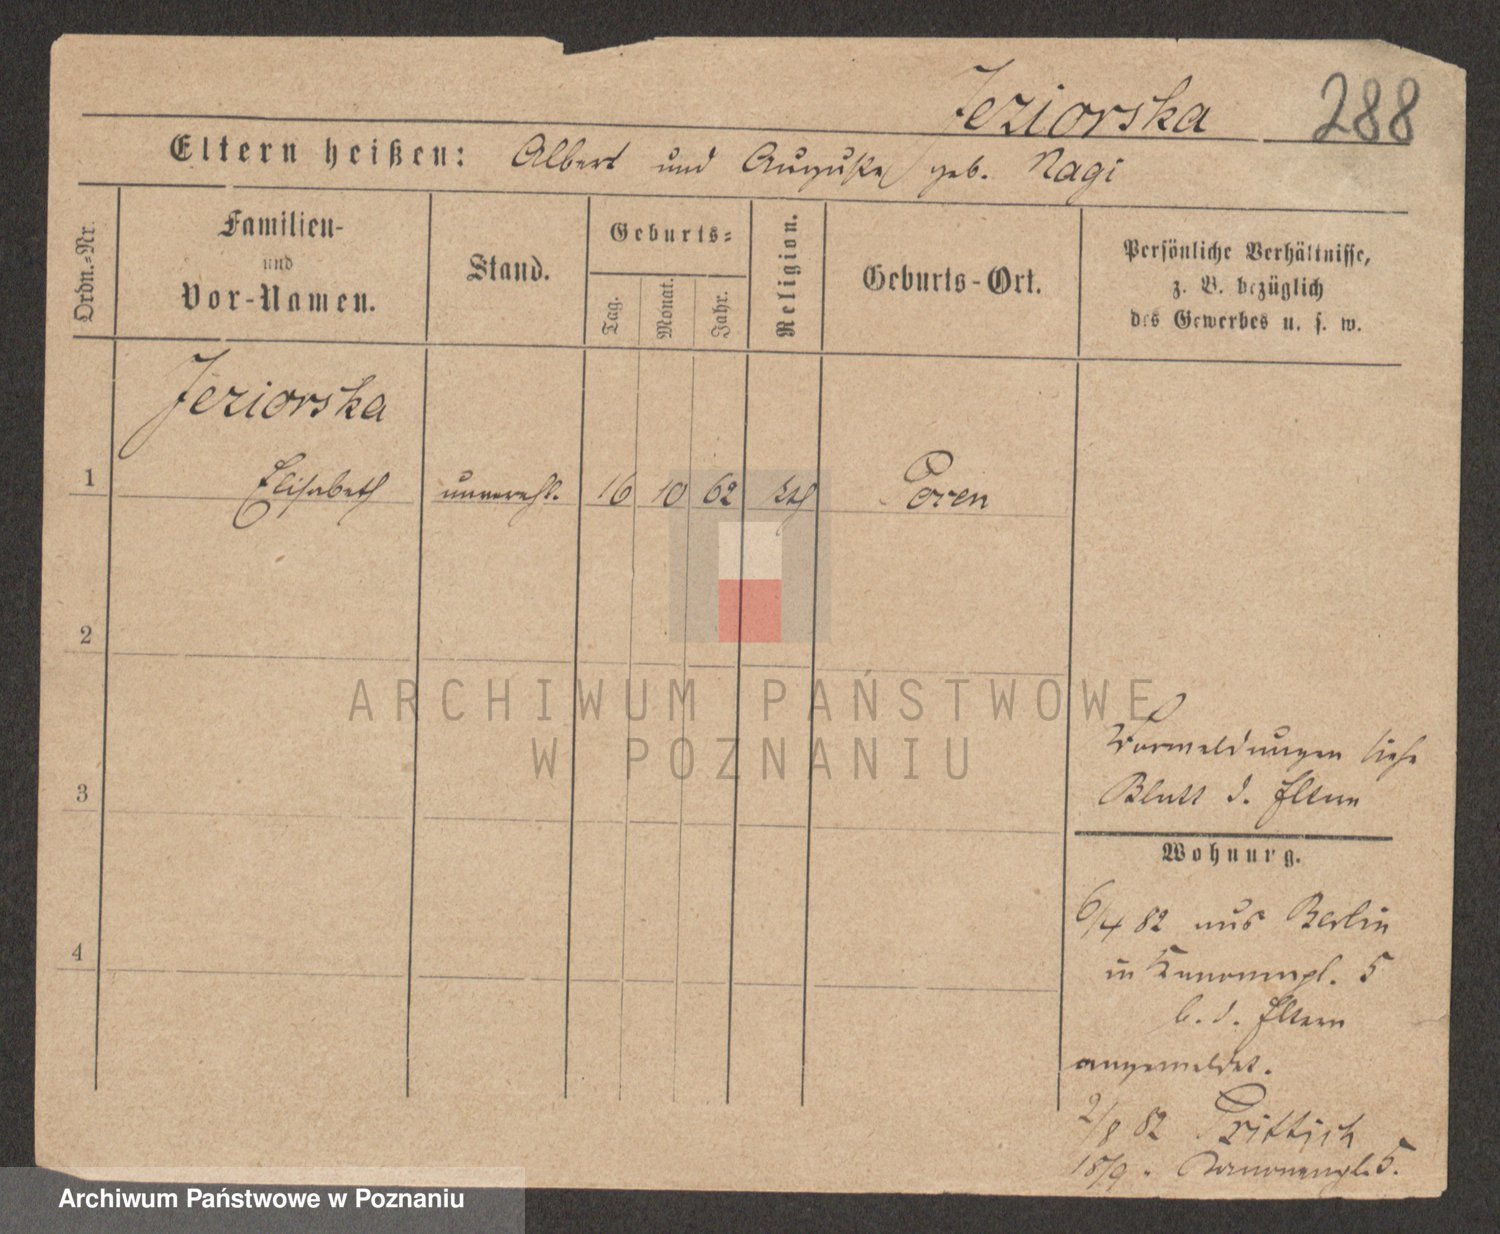 Jeziorska 288
Eltern heißen: Albert und Auguste geb. Nagi
Ordn.-Nr.
Familien-
und
Vor-Namen.
Stand.
Geburts-
Tag.
Monat.
Jahr.
Religion.
Geburts-Ort.
Persönliche Verhältnisse,
z. B. bezüglich
des Gewerbes u. s. w.
Jeziorska
1 Elisabeth unverehl. 16 10 62 kth Posen
2
3
4
Vormeldungen siehe
Blatt d. Eltern
Wohnung.
6/4 82 aus Berlin
in Kanonenpl. 5
b. d. Eltern
angemeldet.
2/8 82 Prittisch
18/9 " Kanonenpl. 5.
ARCHIWUM PAŃSTWOWE
W POZNANIU
Archiwum Państwowe w Poznaniu